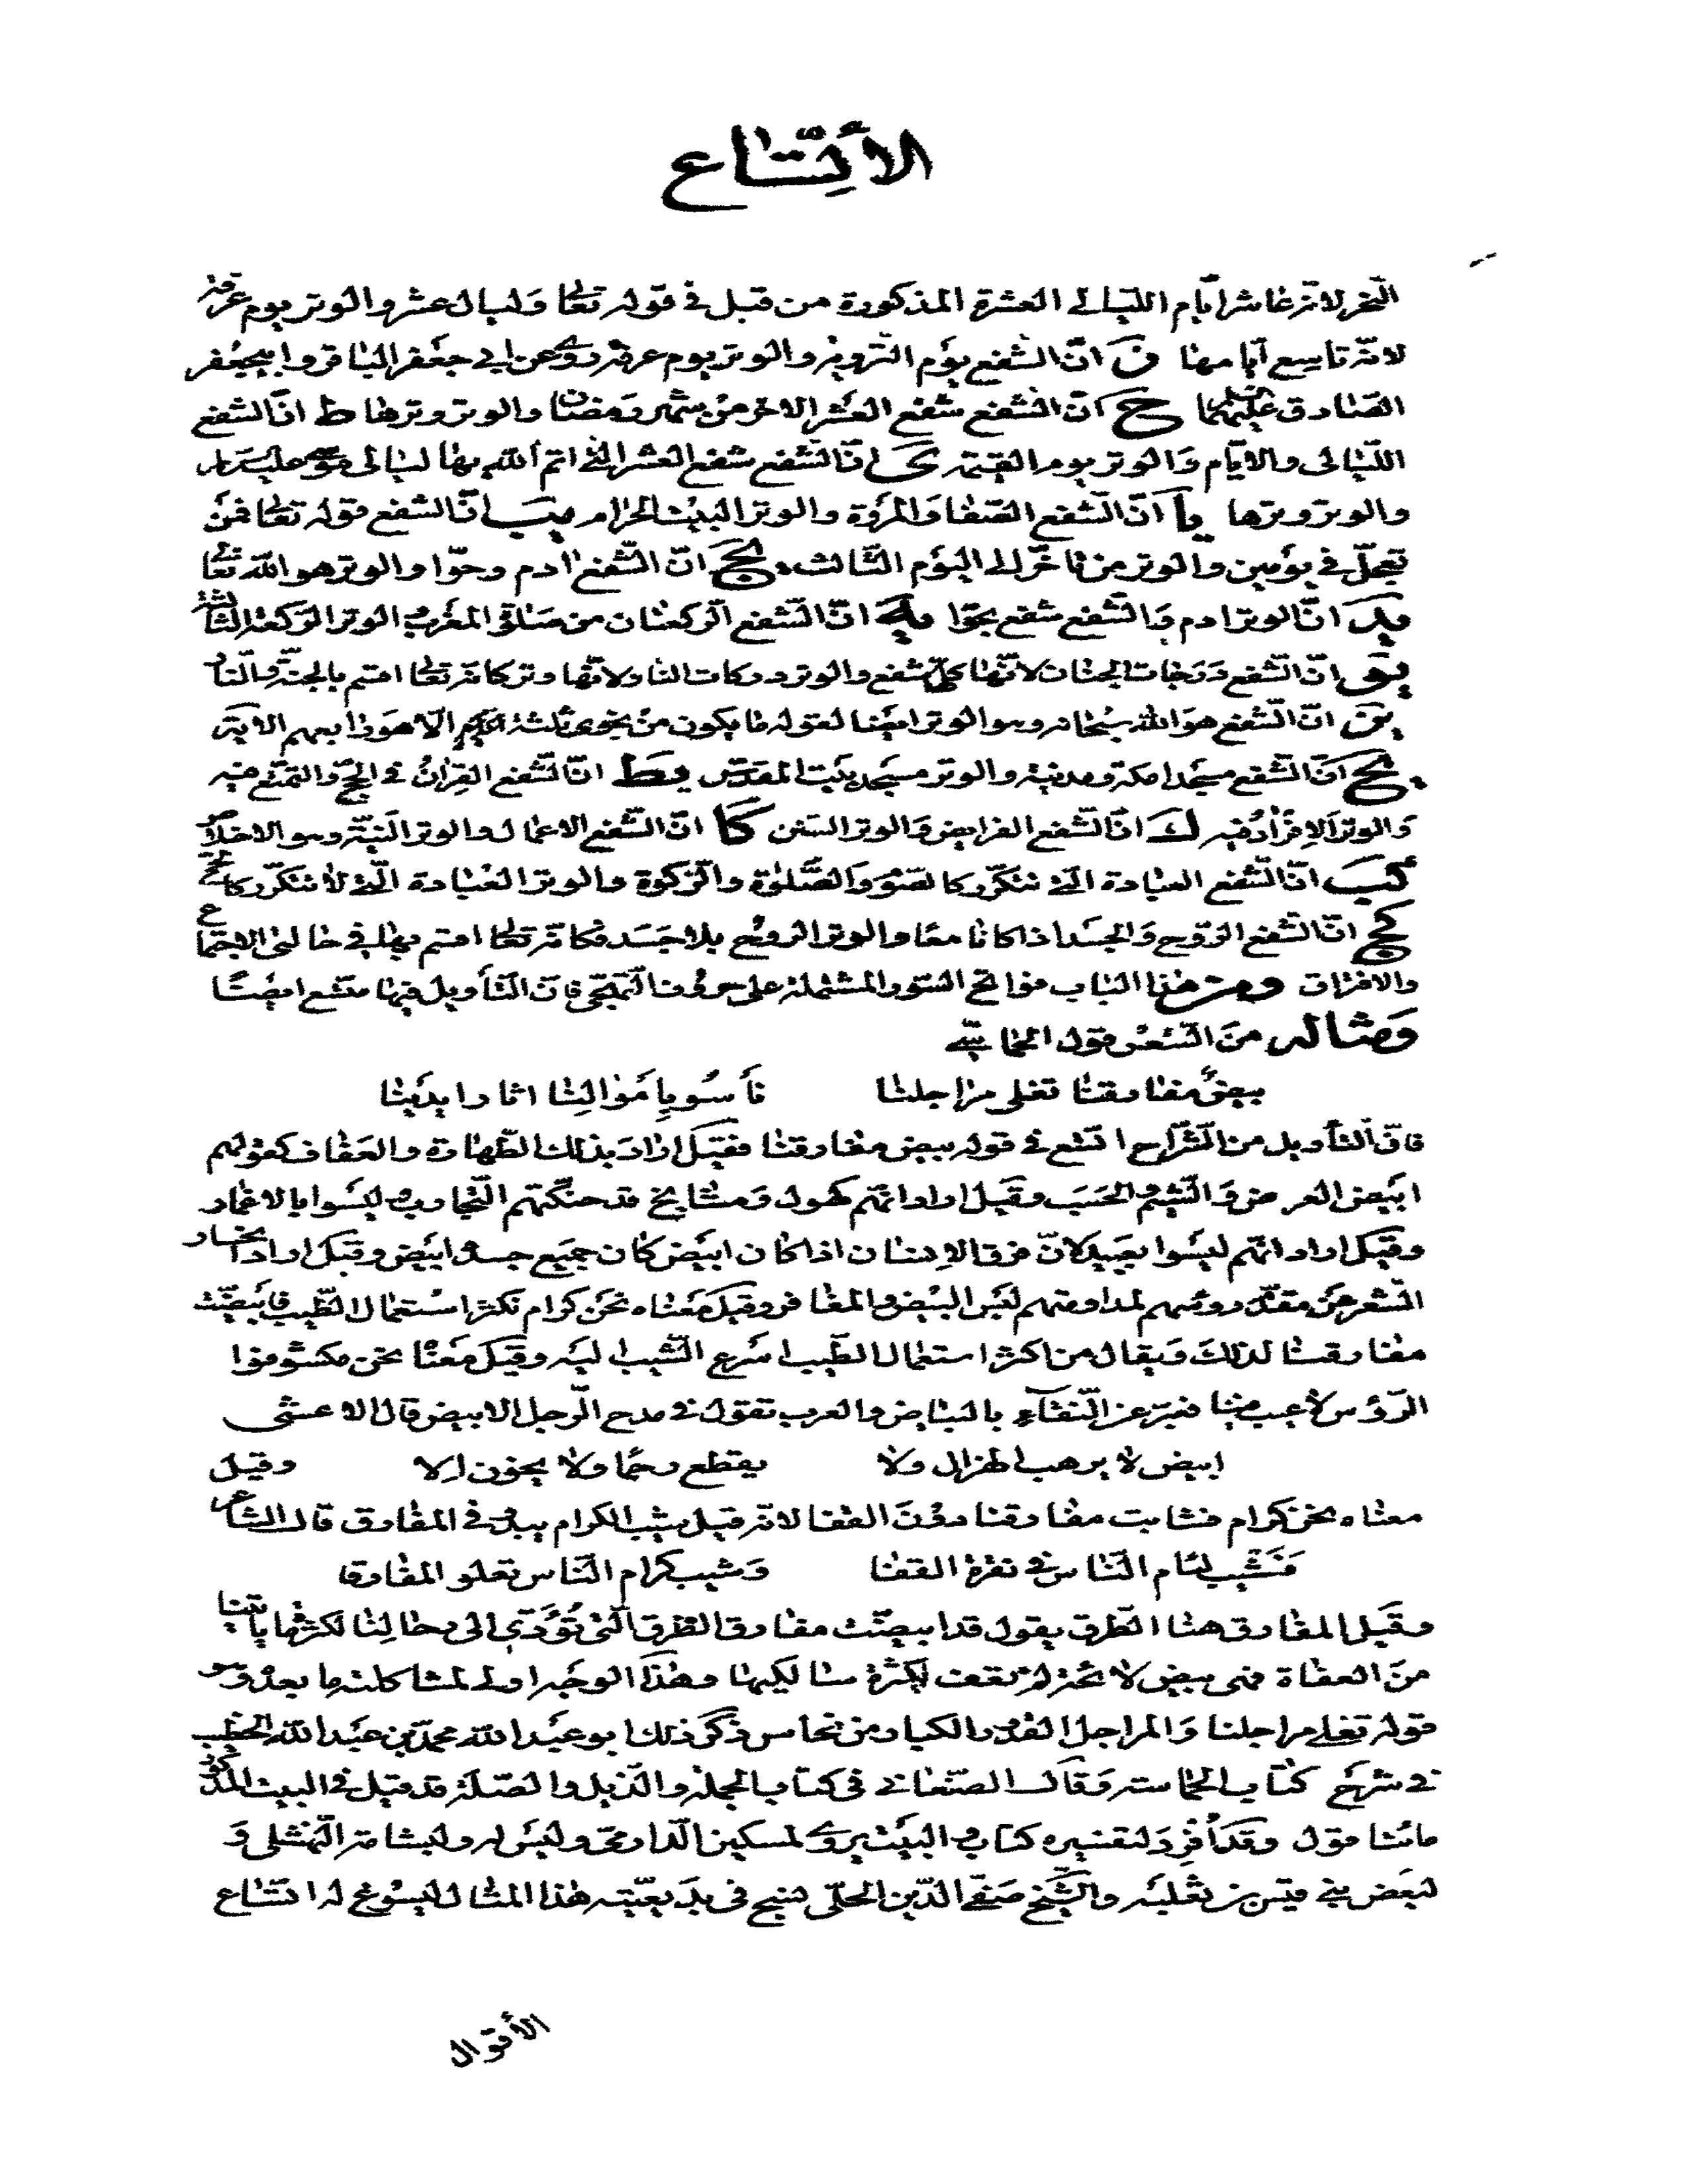 الأتّساع
النّحر لانّه عاشر ايّام اللّيالى العشرة المذكورة من قبل فى قوله تعالى وليال عشر والوتر يوم عرفة
لانّه تاسع ايامها ز انّ الشّفع يوم التّروية والوتر يوم عرفة روى عن ابى جعفر الباقر وابيجعفر
الصّادق عليهما ح انّ الشّفع شفع العشر الاخر من شهر رمضان والوتر وترها ط انّ الشفع
اللّيالى والايّام والوتر يوم القيمة ى انّ الشّفع شفع العشر الّتى اتمّ اللّه بها ليالى موسى عليه السلام
والوتر وترها يا انّ الشّفع الصّفا والمروة والوتر البيت الحرام يب انّ الشفع قوله تعالى فمن
تعجّل فى يومين والوتر من تاخّر الى اليوم الثّالث يج انّ الشّفع ادم وحوّا والوتر هو اللّه تعالى
يد انّ الوتر ادم والشّفع شفع بحوّا يه انّ الشّفع الرّكعتان من صلوة المغرب والوتر الرّكعة الثّالثة
يو انّ الشّفع درجات الجنان لانّها كلّها شفع والوتر دركات النار لانّها وتر كانّه تعالى اقسم بالجنّة والنّار
يز انّ الشّفع هو اللّه سبحانه وهو الوتر ايضا لقوله ما يكون من نجوى ثلثة الّا هو رابعهم الاية
يح انّ الشّفع مسجدا مكة ومدينة والوتر مسجد بيت المقدّس يط انّ الشّفع القران فى الحجّ والتمتّع فيه
والوتر الافراد فيه ك انّ الشّفع الفرايض والوتر السّنن كا انّ الشّفع الاعمال والوتر النّيّة وهو الاخلاص
كب انّ الشّفع العبادة الّتى تتكرّر كالصّوم والصّلوة والزّكوة والوتر العبادة الّتى لا تتكرّر كالحجّ
كج انّ الشّفع الرّوح والجسد اذا كانا معا والوتر الروح بلا جسد فكانّه تعالى اقسم بها فى حالتى الاجتماع
والافتراق ومن هذا الباب فواتح السّور المشتملة على حروف التّهجّى فانّ التّأويل فيها متّسع ايضًا
ومثاله من الشّعر قول الحماسيّ
بيض مفارقنا تغلى مراجلنا نأسو باموالنا اثار ايدينا
فانّ التّأويل من الشّراح اتّسع فى قوله بيض مفارقنا فقيل اراد بذلك الطّهارة والعفاف كقولهم
ابيض العرض والشّيم والحسب وقيل اراد انّهم كهول ومشايخ قد حنّكتهم التّجارب ليسوا بالاغمار
وقيل اراد انّهم ليسوا بعبيد لانّ فرق الانسان اذا كان ابيض كان جميع جسده ابيض وقيل اراد انحسار
الشّعر عن مقدّم رؤسهم لمداومتهم لبس البيض والمغافر وقيل معناه نحن كرام نكثر استعمال الطّيب فابيضّت
مفارقنا لذلك ويقال من اكثر استعمال الطّيب اسرع الشّيب اليه وقيل معناه نحن مكشوفوا
الرّؤس لا عيب فينا فعبّر عن النّقاء بالبياض والعرب تقول فى مدح الرّجل الابيض قال الاعشى
ابيض لا يرهب الهزال ولا يقطع رحما ولا يخون الا وقيل
معناه نحن كرام فشابت مفارقنا دون القفا لانّه قيل شيب الكرام يبدو فى المفارق قال الشّاعر
وشيب لئام النّاس فى نقرة القفا وشيب كرام النّاس تعلو المفارقا
وقيل المفارق هنا الطّرق يقول قد ابيضّت مفارق الطّرق الّتى تؤدّى الى رحالنا لكثرة ما ياتينا
من العفاة فهى بيض لا سالكيها وهذا الوجه اولى لمشاكلته ما بعده وهو
قوله تغلى مراجلنا والمراجل القدور الكبار من نحاس ذكر ذلك ابو عبد اللّه محمّد بن عبد اللّه الخطيب
فى شرح كتاب الحماسة وقال الصّغانى فى كتاب التّكملة والذّيل والصّلة قد قيل فى البيت المذكور
مائتا قول وقد أفرد لتفسيره كتاب والبيت يروى لمسكين الدّارمى وليس له ولبشامة النّهشلى و
لبعض بنى قيس بن ثعلبه والشّيخ صفىّ الدّين الحلّى نسج فى بديعيّته هذا المثال ليسوغ له اتّساع
الأقوال